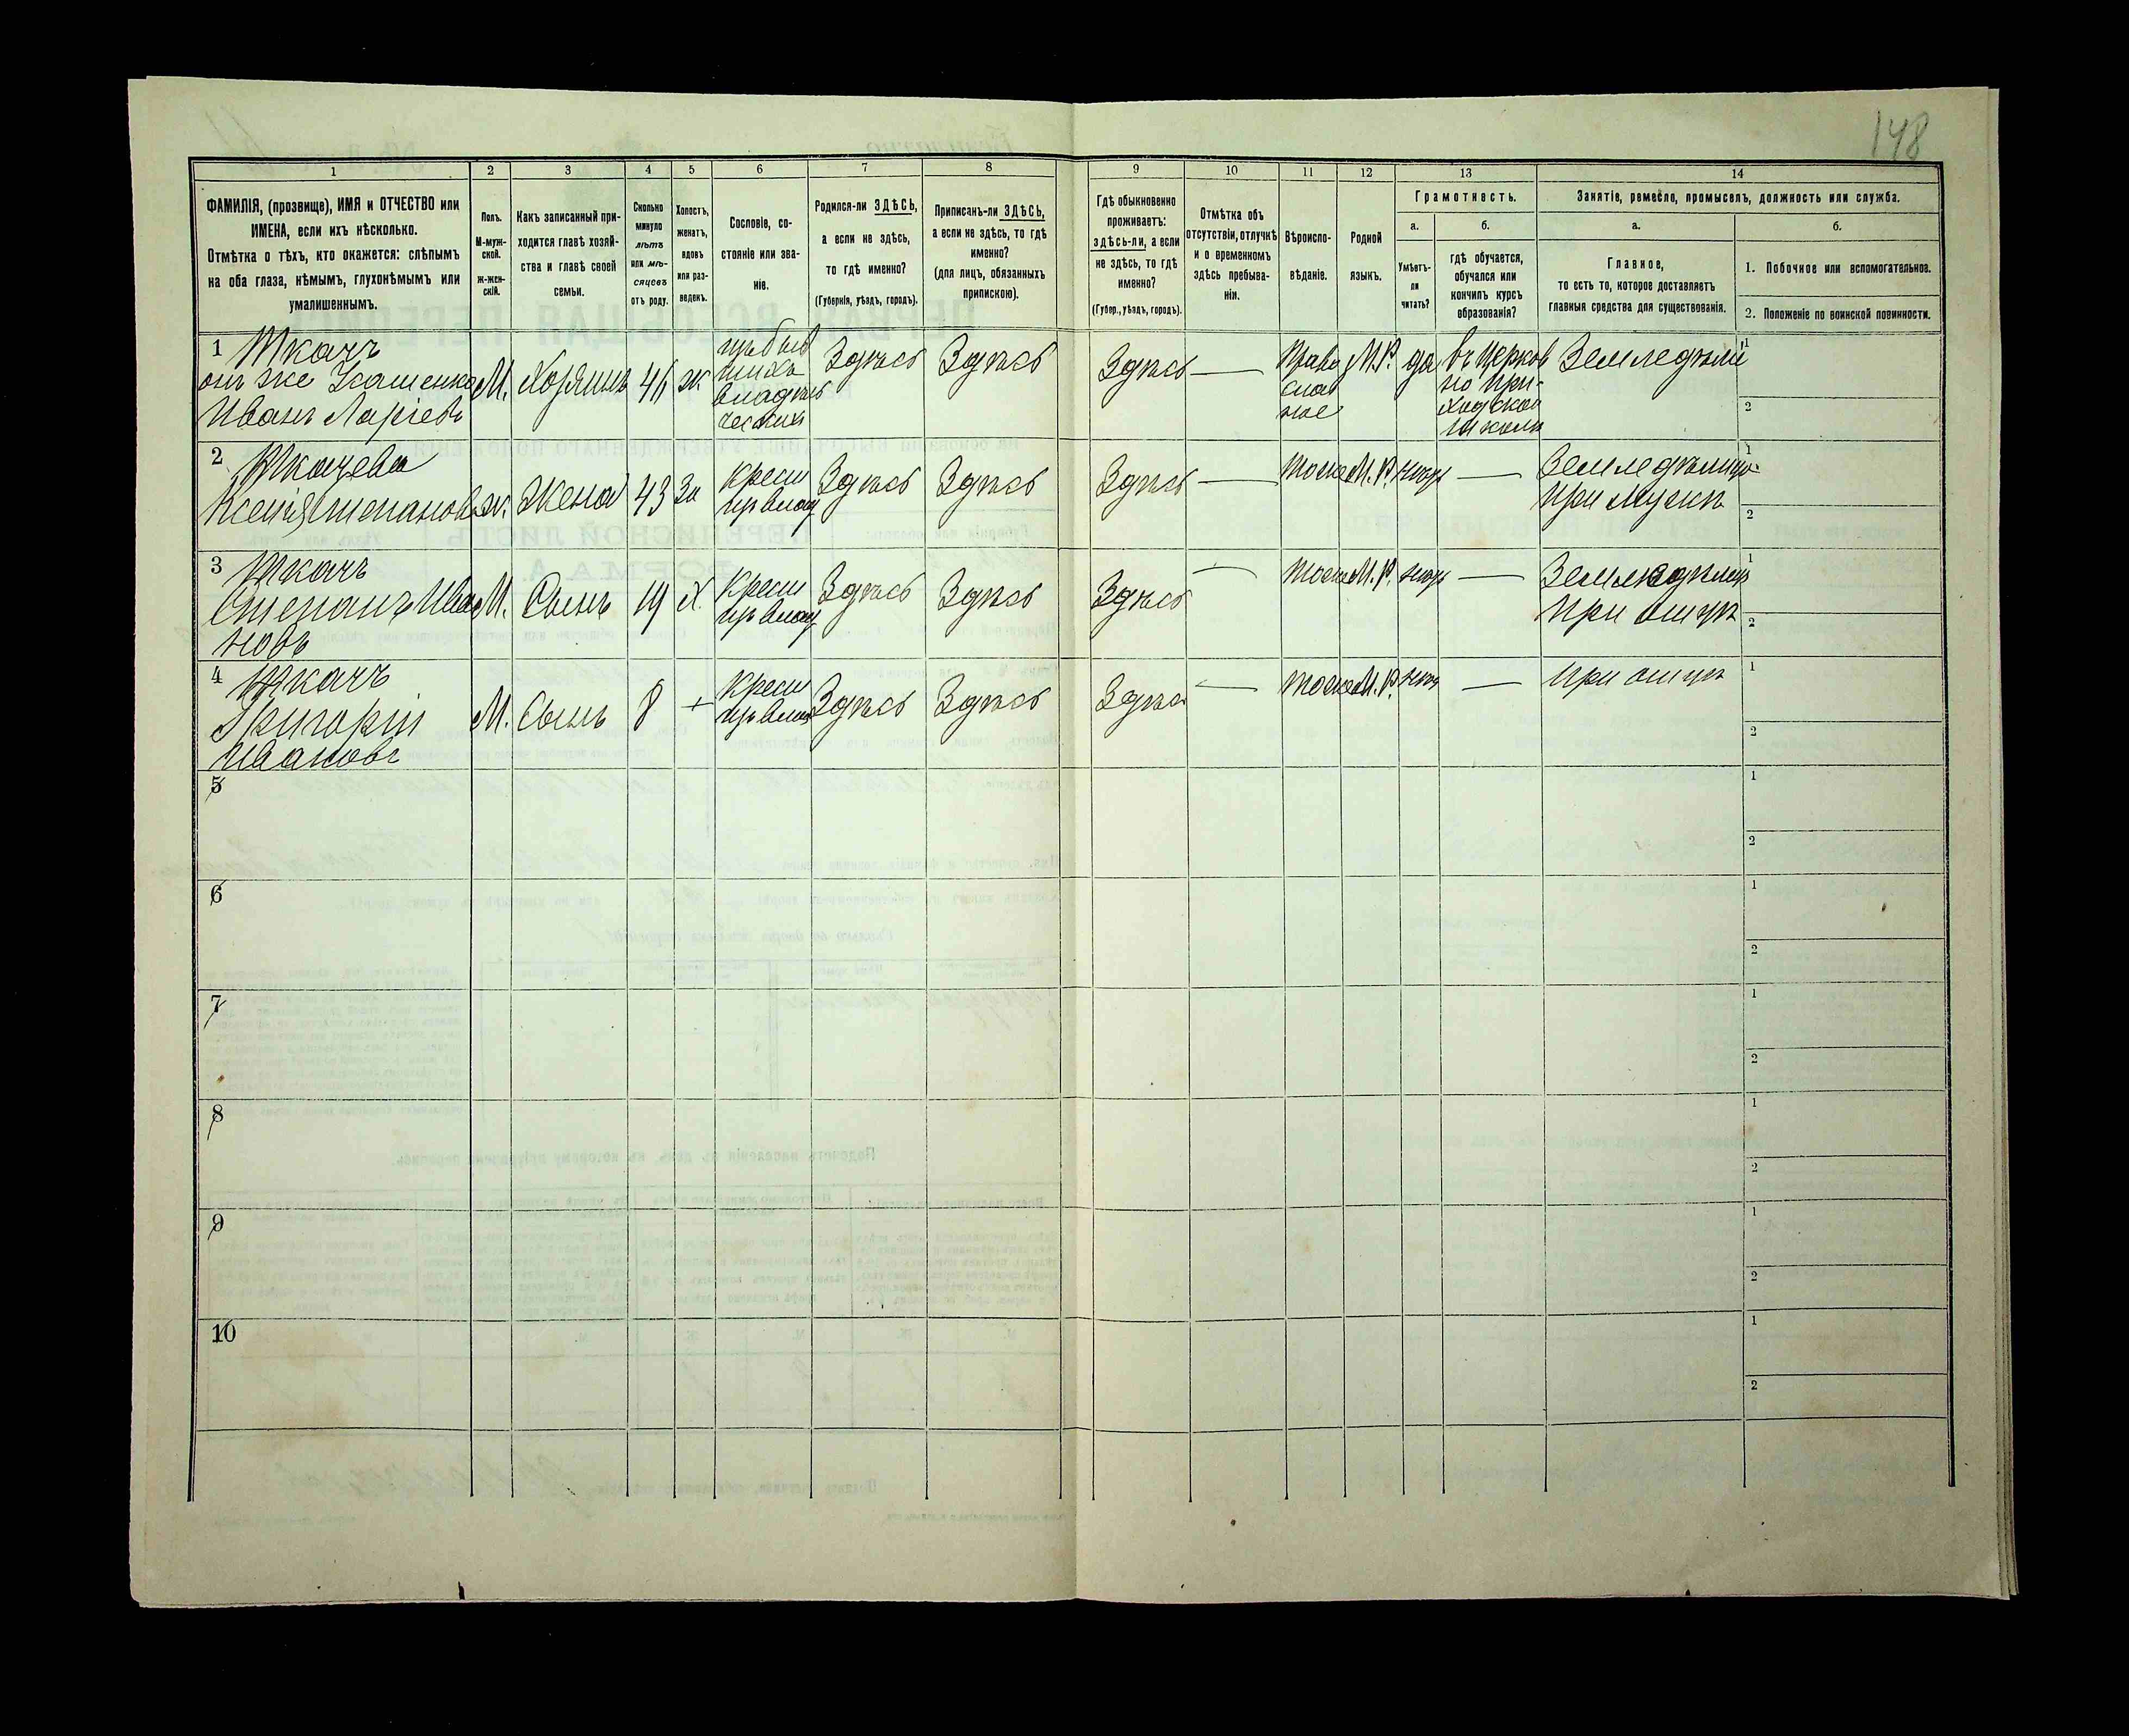 148
1
2
3
4
5
6
7
8
9
10
11
12
13
14
ФАМИЛІЯ, (прозвище), ИМЯ и ОТЧЕСТВО или
ИМЕНА, если ихъ нѣсколько.
Отмѣтка о тѣхъ, кто окажется: слѣпымъ
на оба глаза, нѣмымъ, глухонѣмымъ или
умалишеннымъ.
Полъ.
М-муж-
ской.
ж-жен-
скій.
Какъ записанный при-
ходится главѣ хозяй-
ства и главѣ своей
семьи.
Сколько
минуло
лѣтъ
или мѣ-
сяцевъ
отъ роду.
Холостъ,
женатъ,
вдовъ
или раз-
веденъ.
Сословіе, со-
стояніе или зва-
ніе.
Родился-ли ЗДѢСЬ,
а если не здѣсь,
то гдѣ именно?
(Губернія, уѣздъ, городъ).
Приписанъ-ли ЗДѢСЬ,
а если не здѣсь, то гдѣ
именно?
(для лицъ, обязанныхъ
припискою).
Гдѣ обыкновенно
проживаетъ:
здѣсь-ли, а если
не здѣсь, то гдѣ
именно?
(Губер., уѣздъ, городъ).
Отмѣтка объ
отсутствіи, отлучкѣ
и о временномъ
здѣсь пребыва-
ніи.
Вѣроиспо-
вѣданіе.
Родной
языкъ.
Грамотность.
а.
Умѣетъ-
ли
читать?
б.
гдѣ обучается,
обучался или
кончилъ курсъ
образованія?
Занятіе, ремесло, промыселъ, должность или служба.
а.
Главное,
то есть то, которое доставляетъ
главныя средства для существованія.
б.
1. Побочное или вспомогательное.
2. Положеніе по воинской повинности.
1 Ткачъ
онъ же
Иванъ Ларіевъ
М. Хозяинъ 46 ж.
изъ быв
шихъ
владѣль
ческихъ
Здѣсь Здѣсь Здѣсь —
Право
слав
ное
М.Р. да
въ Церков
но при-
ходской
школѣ
Земледѣліе
1
2
2 Ткачева
Ксенія Степанова
ж. Жена 43 За
Крест
изъ влад
Здѣсь Здѣсь Здѣсь — тоже М.Р. нѣтъ —
при мужѣ
1
2
3 Ткачъ
Степанъ Ива
новъ
М. Сынъ 19 Х.
Крест
изъ влад
Здѣсь Здѣсь Здѣсь — тоже М.Р. нѣтъ —
при отцѣ
1
2
4 Ткачъ
Григорій
Ивановъ
М. Сынъ 8 +
Крест
изъ влад
Здѣсь Здѣсь Здѣсь — тоже М.Р. нѣтъ — при отцѣ
1
2
5
1
2
6
1
2
7
1
2
8
1
2
9
1
2
10
1
2